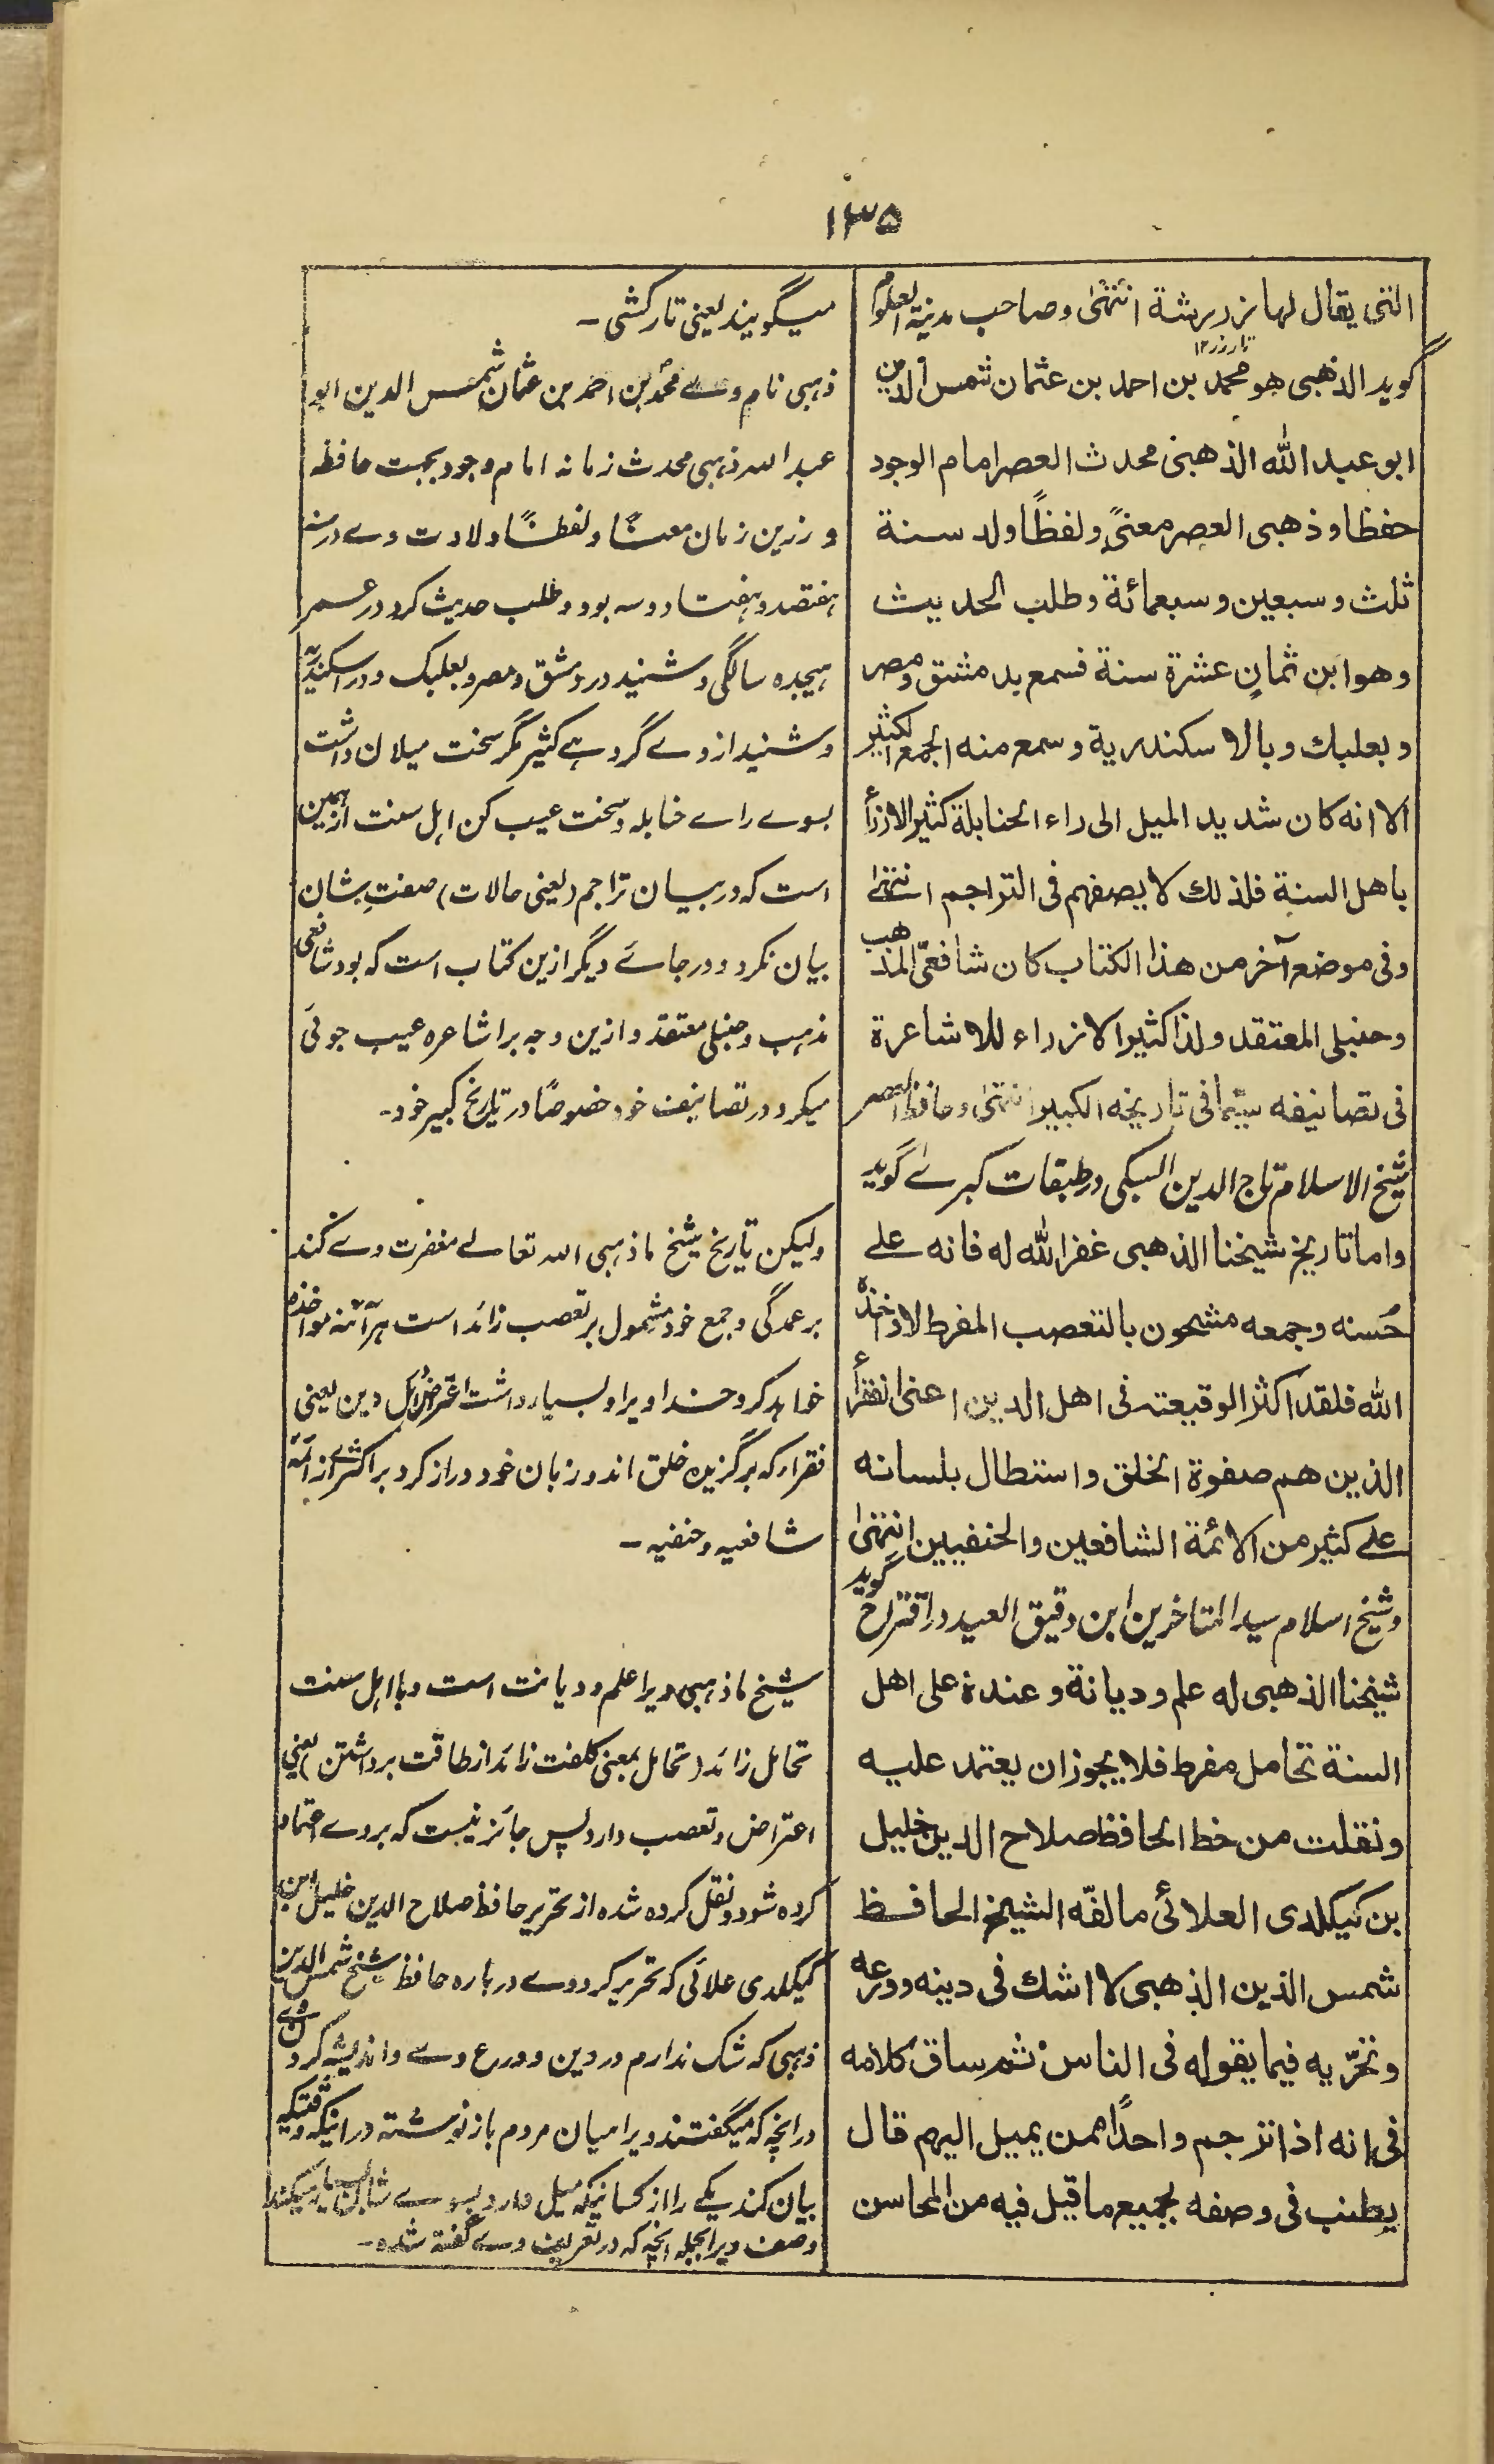 ١٣٥
التی یقال لها زردرشة انتهی وصاحب مدنیة العلوم
تارزر١٢
گوید الذهبی هو محمد بن احمد بن عثمان شمس الدین
ابو عبد الله الذهبی محدث العصر امام الوجود
حفظا وذهبی العصر معنیً ولفظاً ولد سنة
ثلث وسبعین وسبعمائة وطلب الحدیث
وهو ابن ثمانٍ عشرة سنة فسمع بدمشق ومصر
وبعلبك وبالاسکندریة وسمع منه الجمع الکثیر
الا انه کان شدید المیل الی راء الحنابلة کثیر الازرأ
باهل السنة فلذلك لا یصفهم فی التراجم انتهی
وفی موضع آخر من هذا الکتاب کان شافعیّ المذهب
وحنبلی المعتقد ولذا کثیر الازراء للاشاعرة
فی تصانیفه سیّما فی تاریخه الکبیر انتهی وحافظ العصر
شیخ الاسلام تاج الدین السبکی در طبقات کبرے گوید
واما تاریخ شیخنا الذهبی غفر الله له فانه علے
حُسنه وجمعه مشحون بالتعصب المفرط لا واخذه
الله فلقد اکثر الوقیعة فی اهل الدین اعنی الفقرأ
الذین هم صفوة الخلق واستطال بلسانه
علے کثیر من الائمة الشافعین والحنفیین انتهی
وشیخ اسلام سید المتاخرین ابن دقیق العید در اقتراح گوید
شیخنا الذهبی له علم ودیانة وعنده علی اهل
السنة تحامل مفرط فلا یجوز ان یعتمد علیه
ونقلت من خط الحافظ صلاح الدین خلیل
بن کیکلدی العلائی ما لفّه الشیخ الحافظ
شمس الدین الذهبی لا اشك فی دینه وورعه
وتحرّیه فیما یقوله فی الناس ثم ساق کلامه
فی انه اذا ترجم واحداً ممن یمیل الیهم قال
یطنب فی وصفه بجمیع ما قیل فیه من المحاسن
میگویند یعنی تارکشی۔
ذہبی نام وے محمد بن احمد بن عثمان شمس الدین ابو
عبد الله ذہبی محدث زمانہ امام وجود بجہت حافظہ
و زرین زمان معناً ولفظاً ولادت وے درسنہ
ہفتصد وہفتاد وسہ بود وطلب حدیث کرد در عمر
ہیجدہ سالگی وشنید در دمشق ومصر وبعلبک ودر اسکندریہ
وشنید از وے گروہے کثیر مگر سخت میلان داشت
بسوے راے حنابلہ وسخت عیب کن اہل سنت ازہمین
است کہ در بیان تراجم (یعنی حالات) صفتِ شان
بیان نکرد ودر جاے دیگر ازین کتاب است کہ بود شافعی
مذہب وحنبلی معتقد وازین وجہ بر اشاعرہ عیب جوئی
میکرد در تصانیف خود خصوصًا در تاریخ کبیر خود۔
ولیکن تاریخ شیخ ما ذہبی الله تعالے مغفرت وے کند
بر عمدگی وجمع خود مشمول بر تعصب زائد است ہر آئنہ مواخذہ
خواہد کرد خدا ویرا وبسیار داشت اعتراض بر اہل دین یعنی
فقرا کہ برگزیدہ خلق اند وزبان خود دراز کرد بر اکثرے از ائمہ
شافعیہ وحنفیہ۔
شیخ ما ذہبی ویرا علم ودیانت است وبا اہل سنت
تحامل زائد (تحامل بمعنی کلفت زائد از طاقت برداشتن) یعنی
اعتراض وتعصب دارد پس جائز نیست کہ بروے اعتماد
کردہ شود ونقل کردہ شدہ از تحریر حافظ صلاح الدین خلیل ابن
کیکلدی علائی کہ تحریر کردوے دربارہ حافظ شیخ شمس الدین
ذہبی کہ شک ندارم در دین وورع وے واندیشہ کردن وے
درانچہ کہ میگفتند ویرا میان مردم باز نوشتہ در اینکہ وقتیکہ
بیان کند یکے را از کسانیکہ میل دارد بسوے شان بسیار میکند
وصف ویرا بجملہ انچہ کہ در تعریف وے گفتہ شدہ۔